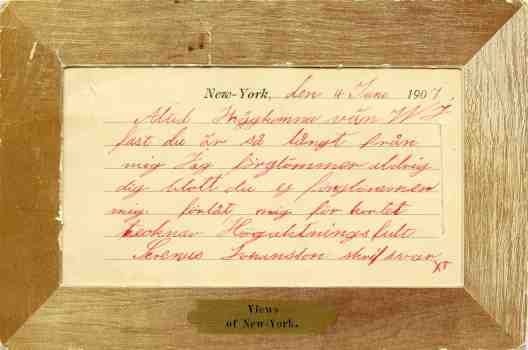 New-York, den 4 Juno 1907.
Altid Högkomna vän W J
fast du är så långt från
mig Jag förglömmer aldrig
dig blott du ej förglömmer
mig. förlåt mig för kortet
tecknar Högaktningsfult
Johansson skrif svar
Views
of New-York.